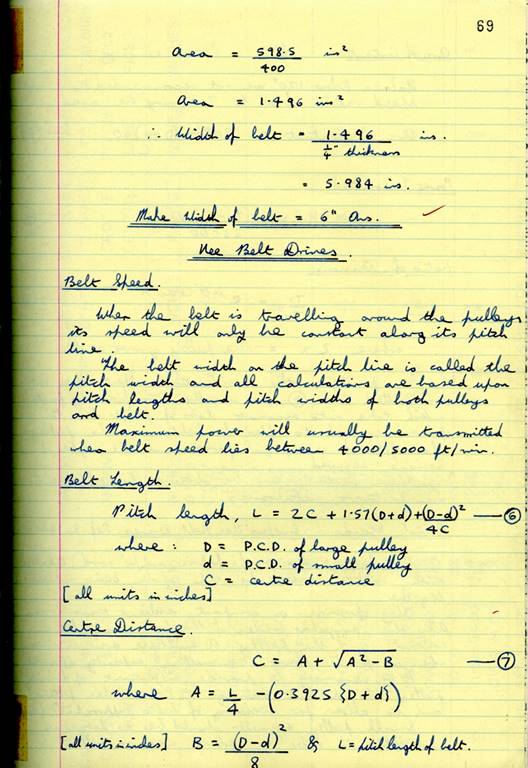 69
Area = 598.5 / 400 ins²
Area = 1.496 ins²
∴ Width of belt = 1.496 / ¼" thickness ins.
= 5.984 ins.
Make Width of belt = 6" Ans. ✓
Vee Belt Drives.
Belt Speed.
When the belt is travelling around the pulleys
its speed will only be constant along its pitch
line.
The belt width on the pitch line is called the
pitch width and all calculations are based upon
pitch lengths and pitch widths of both pulleys
and belt.
Maximum power will usually be transmitted
when belt speed lies between 4000/5000 ft/min.
Belt Length.
Pitch length, L = 2C + 1.57(D+d) + (D-d)² / 4C — ⑥
where : D = P.C.D. of large pulley
d = P.C.D. of small pulley
C = centre distance
[all units in inches]
Centre Distance.
C = A + √(A² - B) — ⑦
where A = L/4 - (0.3925 {D+d})
[all units in inches] B = (D-d)² / 8 & L = pitch length of belt.